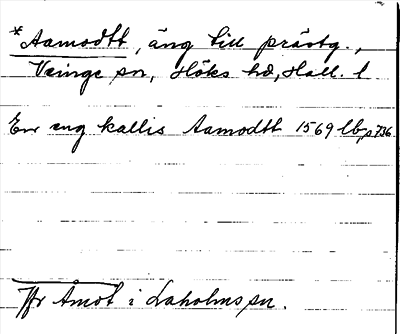 *Aamodtt, äng till prästg.,
Veinge sn, Höks hd, Hall. l
En eng kallis Aamodtt 1569 lb, p 736.
Jfr Åmot i Laholms sn.